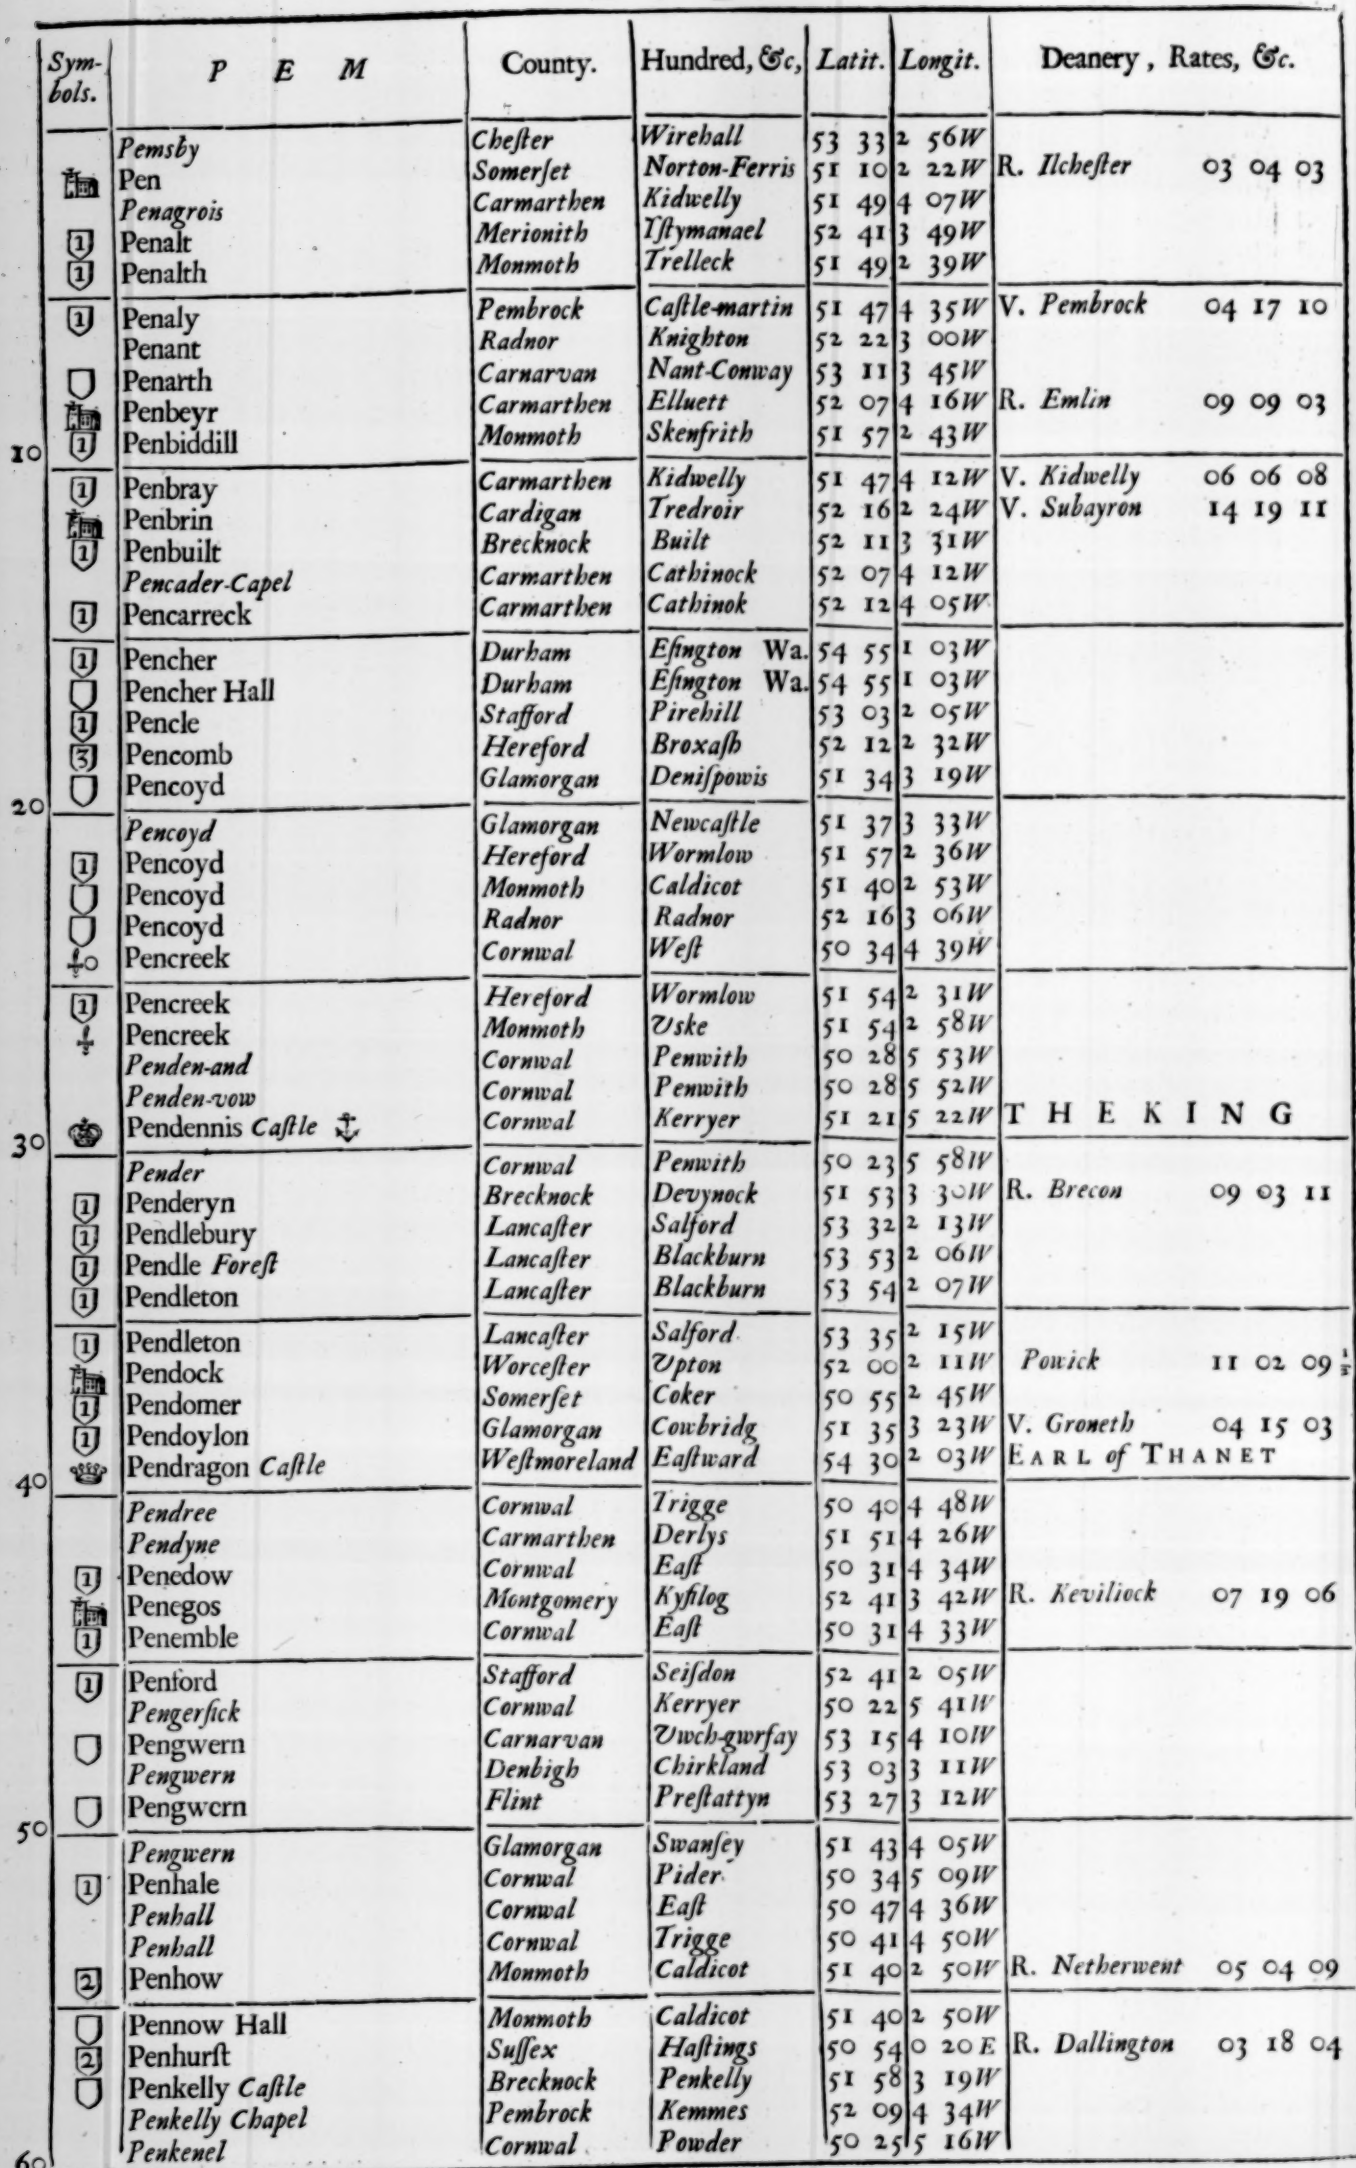 Symbols. P E M County. Hundred, &c, Latit. Longit. Deanery, Rates, &c.
Pemsby Cheſter Wirehall 53 33 2 56W
Pen Somerſet Norton-Ferris 51 10 2 22W R. Ilcheſter 03 04 03
Penagrois Carmarthen Kidwelly 51 49 4 07W
1 Penalt Merionith Yſtymanael 52 41 3 49W
1 Penalth Monmoth Trelleck 51 49 2 39W
1 Penaly Pembrock Caſtle-martin 51 47 4 35W V. Pembrock 04 17 10
Penant Radnor Knighton 52 22 3 00W
Penarth Carnarvan Nant-Conway 53 11 3 45W
Penbeyr Carmarthen Elluett 52 07 4 16W R. Emlin 09 09 03
10 1 Penbiddill Monmoth Skenfrith 51 57 2 43W
1 Penbray Carmarthen Kidwelly 51 47 4 12W V. Kidwelly 06 06 08
Penbrin Cardigan Tredroir 52 16 2 24W V. Subayron 14 19 11
1 Penbuilt Brecknock Built 52 11 3 31W
Pencader-Capel Carmarthen Cathinock 52 07 4 12W
1 Pencarreck Carmarthen Cathinok 52 12 4 05W
1 Pencher Durham Eſington Wa. 54 55 1 03W
Pencher Hall Durham Eſington Wa. 54 55 1 03W
1 Pencle Stafford Pirehill 53 03 2 05W
3 Pencomb Hereford Broxaſh 52 12 2 32W
20 Pencoyd Glamorgan Deniſpowis 51 34 3 19W
Pencoyd Glamorgan Newcaſtle 51 37 3 33W
1 Pencoyd Hereford Wormlow 51 57 2 36W
Pencoyd Monmoth Caldicot 51 40 2 53W
Pencoyd Radnor Radnor 52 16 3 06W
Pencreek Cornwal Weſt 50 34 4 39W
1 Pencreek Hereford Wormlow 51 54 2 31W
Pencreek Monmoth Uske 51 54 2 58W
Penden-and Cornwal Penwith 50 28 5 53W
Penden-vow Cornwal Penwith 50 28 5 52W
30 Pendennis Caſtle Cornwal Kerryer 51 21 5 22W T H E K I N G
Pender Cornwal Penwith 50 23 5 58W
1 Penderyn Brecknock Devynock 51 53 3 30W R. Brecon 09 03 11
1 Pendlebury Lancaſter Salford 53 32 2 13W
1 Pendle Foreſt Lancaſter Blackburn 53 53 2 06W
1 Pendleton Lancaſter Blackburn 53 54 2 07W
1 Pendleton Lancaſter Salford 53 35 2 15W
Pendock Worceſter Upton 52 00 2 11W Powick 11 02 09½
1 Pendomer Somerſet Coker 50 55 2 45W
1 Pendoylon Glamorgan Cowbridg 51 35 3 23W V. Groneth 04 15 03
40 Pendragon Caſtle Weſtmoreland Eaſtward 54 30 2 03W EARL of THANET
Pendree Cornwal Trigge 50 40 4 48W
Pendyne Carmarthen Derlys 51 51 4 26W
1 Penedow Cornwal Eaſt 50 31 4 34W
Penegos Montgomery Kyfilog 52 41 3 42W R. Keviliock 07 19 06
1 Penemble Cornwal Eaſt 50 31 4 33W
1 Penford Stafford Seiſdon 52 41 2 05W
Pengerſick Cornwal Kerryer 50 22 5 41W
Pengwern Carnarvan Uwch-gwrfay 53 15 4 10W
Pengwern Denbigh Chirkland 53 03 3 11W
50 Pengwern Flint Preſtattyn 53 27 3 12W
Pengwern Glamorgan Swanſey 51 43 4 05W
1 Penhale Cornwal Pider 50 34 5 09W
Penhall Cornwal Eaſt 50 47 4 36W
Penhall Cornwal Trigge 50 41 4 50W
2 Penhow Monmoth Caldicot 51 40 2 50W R. Netherwent 05 04 09
Pennow Hall Monmoth Caldicot 51 40 2 50W
2 Penhurſt Suſſex Haſtings 50 54 0 20E R. Dallington 03 18 04
Penkelly Caſtle Brecknock Penkelly 51 58 3 19W
Penkelly Chapel Pembrock Kemmes 52 09 4 34W
60 Penkenel Cornwal Powder 50 25 5 16W